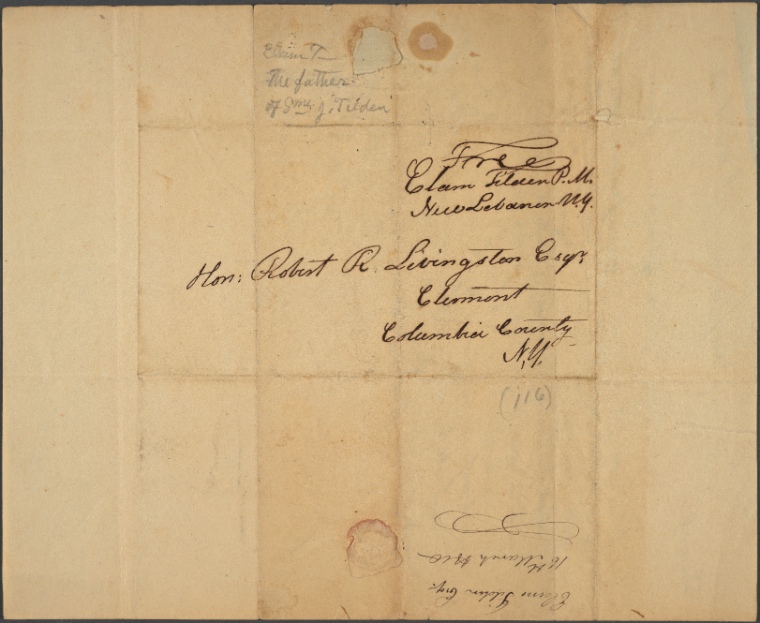 Elam T—
The father
of Sml. J. Tilden
Free
Elam Tilden P.M.
New Lebanon N.Y.
Hon: Robert R. Livingston Esqr.
Clermont
Columbia County
N.Y.
(116)
Elam Tilden Esqr.
16th March